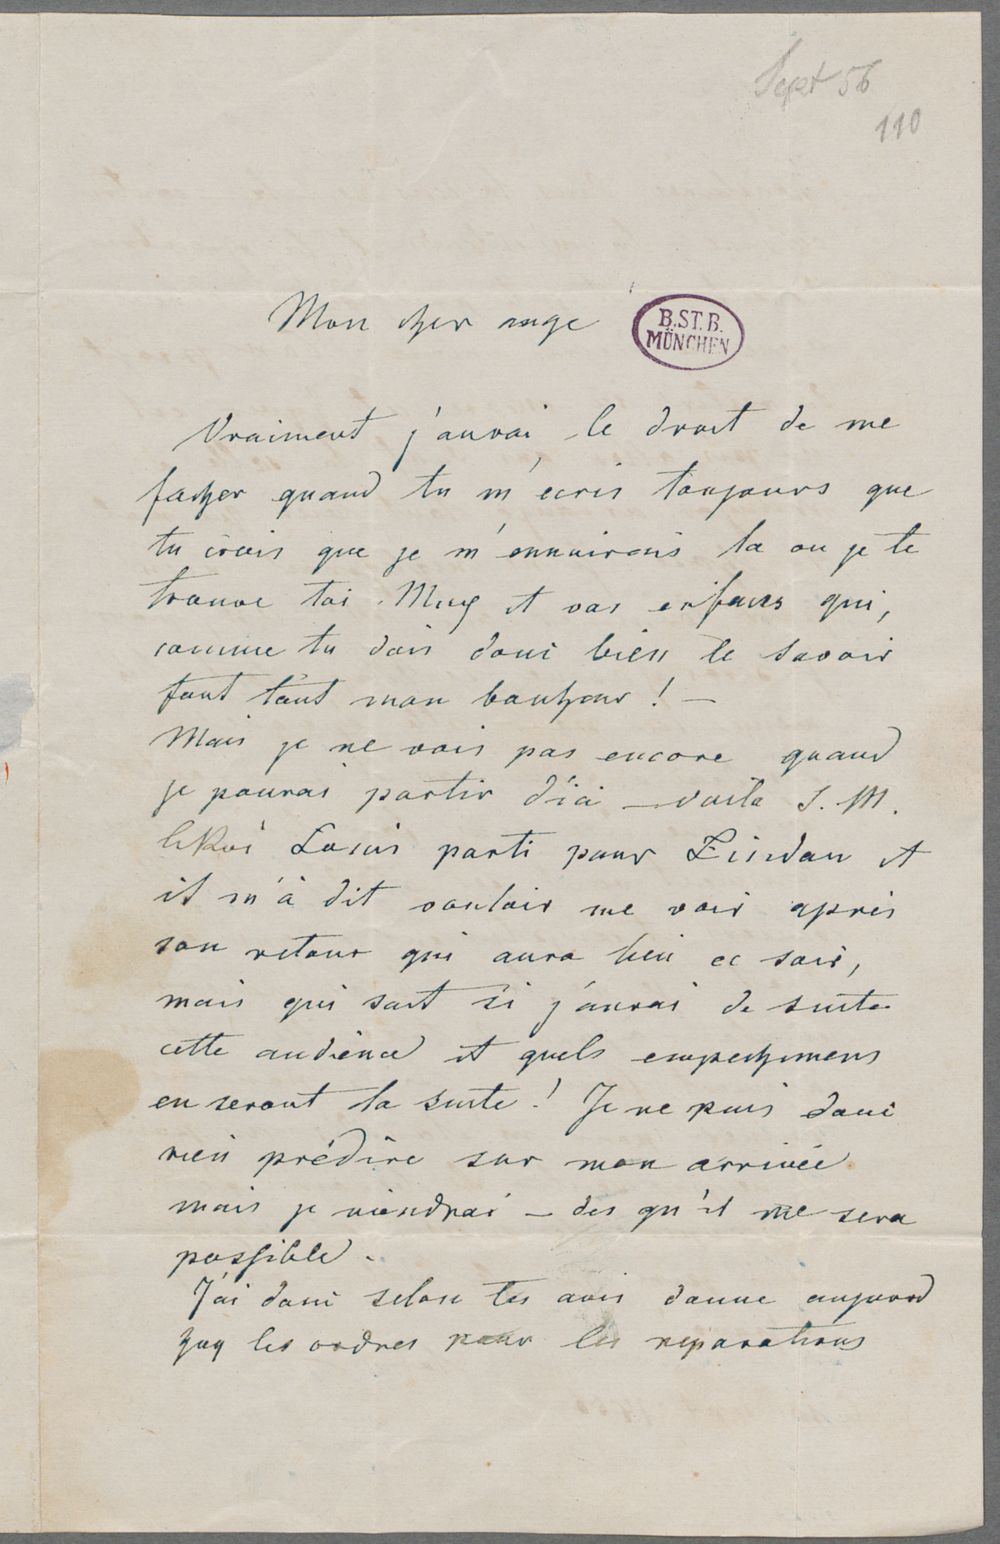 Sept 56
110
Mon cher ange
B.ST.B.
MÜNCHEN
Vraiment j'aurai le droit de me
facher quand tu m'ecris toujours que
tu crois que je m'ennuirais la ou je te
trouve toi et vos enfans qui,
comme tu dois donc bien le savoir
font tout mon bonheur! —
Mais je ne vois pas encore quand
je pourai partir d'ici — voila S. M.
le Roi Louis parti pour Lindau et
il m'à dit vouloir me voir après
son retour qui aura lieu ce soir,
mais qui sait si j'aurai de suite
cette audience et quels empechemens
en seront la suite! Je ne puis donc
rien prédire sur mon arrivée
mais je viendrai — des qu'il me sera
possible.
J'ai donc selon tes avis donne aujourd
huy les ordres pour les reparations